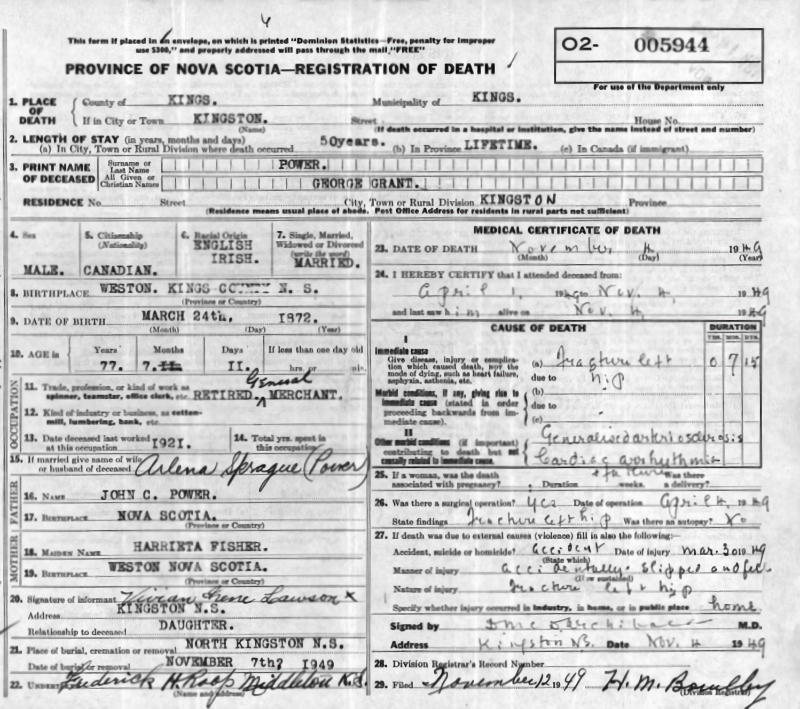 This form if placed in envelope, on which is printed "Dominion Statistics—Free, penalty for improper
use $300," and properly addressed will pass through the mail, "FREE"
O2- 005944
PROVINCE OF NOVA SCOTIA—REGISTRATION OF DEATH
For use of the Department only
1. PLACE OF DEATH
County of KINGS. Municipality of KINGS.
If in City or Town KINGSTON. Street House No.
(Name) (If death occurred in a hospital or institution, give the name instead of street and number)
2. LENGTH OF STAY (in years, months and days)
(a) In City, Town or Rural Division where death occurred 50years. (b) In Province LIFETIME. (c) In Canada (if immigrant)
3. PRINT NAME OF DECEASED
Surname or Last Name POWER.
All Given or Christian Names GEORGE GRANT.
RESIDENCE No. Street City, Town or Rural Division KINGSTON Province
(Residence means usual place of abode. Post Office Address for residents in rural parts not sufficient)
4. Sex 5. Citizenship (Nationality) 6. Racial Origin 7. Single, Married, Widowed or Divorced (write the word)
MALE. CANADIAN. ENGLISH IRISH. MARRIED.
8. BIRTHPLACE WESTON. KINGS COUNTY N. S.
(Province or Country)
9. DATE OF BIRTH MARCH 24th, 1872.
(Month) (Day) (Year)
10. AGE in Years Months Days If less than one day old
77. 7. II. hrs. or min.
OCCUPATION
11. Trade, profession, or kind of work as
spinner, teamster, office clerk, etc. RETIRED General MERCHANT.
12. Kind of industry or business, as cotton-
mill, lumbering, bank, etc.
13. Date deceased last worked at this occupation 1921. 14. Total yrs. spent in this occupation
15. If married give name of wife
or husband of deceased Arlena Sprague (Power)
FATHER
16. NAME JOHN C. POWER.
17. BIRTHPLACE NOVA SCOTIA.
(Province or Country)
MOTHER
18. MAIDEN NAME HARRIETA FISHER.
19. BIRTHPLACE WESTON NOVA SCOTIA.
(Province or Country)
20. Signature of informant Vivian Irene Lawson x
Address KINGSTON N.S.
Relationship to deceased DAUGHTER.
21. Place of burial, cremation or removal NORTH KINGSTON N.S.
Date of burial or removal NOVEMBER 7th? 1949
22. Frederick H. Roop Middleton
(Name and address)
MEDICAL CERTIFICATE OF DEATH
23. DATE OF DEATH November 4 1949
(Month) (Day) (Year)
24. I HEREBY CERTIFY that I attended deceased from:
April 1, Nov. 4, 1949
and last saw him alive on Nov. 4, 1949
CAUSE OF DEATH DURATION
YRS. MOS. DYS.
I
Immediate cause
Give disease, injury or complica-
tion which caused death, not the
mode of dying, such as heart failure,
asphyxia, asthenia, etc.
(a) fracture left 0 7 15
due to hip
Morbid conditions, if any, giving rise to
immediate cause (stated in order
proceeding backwards from im-
mediate cause).
(b)
due to
(c)
II
Other morbid conditions (if important)
contributing to death but not
causally related to immediate cause.
Generalised arteriosclerosis
Cardiac arrhythmia
25. If a woman, was the death Was there
associated with pregnancy? Duration weeks. a delivery?
26. Was there a surgical operation? yes Date of operation April 4, 1949
State findings fracture left hip Was there an autopsy? No
27. If death was due to external causes (violence) fill in also the following:—
Accident, suicide or homicide? accident Date of injury Mar. 30 1949
(State which)
Manner of injury accidentally slipped and fell
(How sustained)
Nature of injury fracture left hip
Specify whether injury occurred in industry, in home, or in public place home
Signed by M.D.
Address Kingston NS. Date Nov. 4 1949
28. Division Registrar's Record Number
29. Filed November 12 1949 H. M. Bowlby
(Division Registrar)